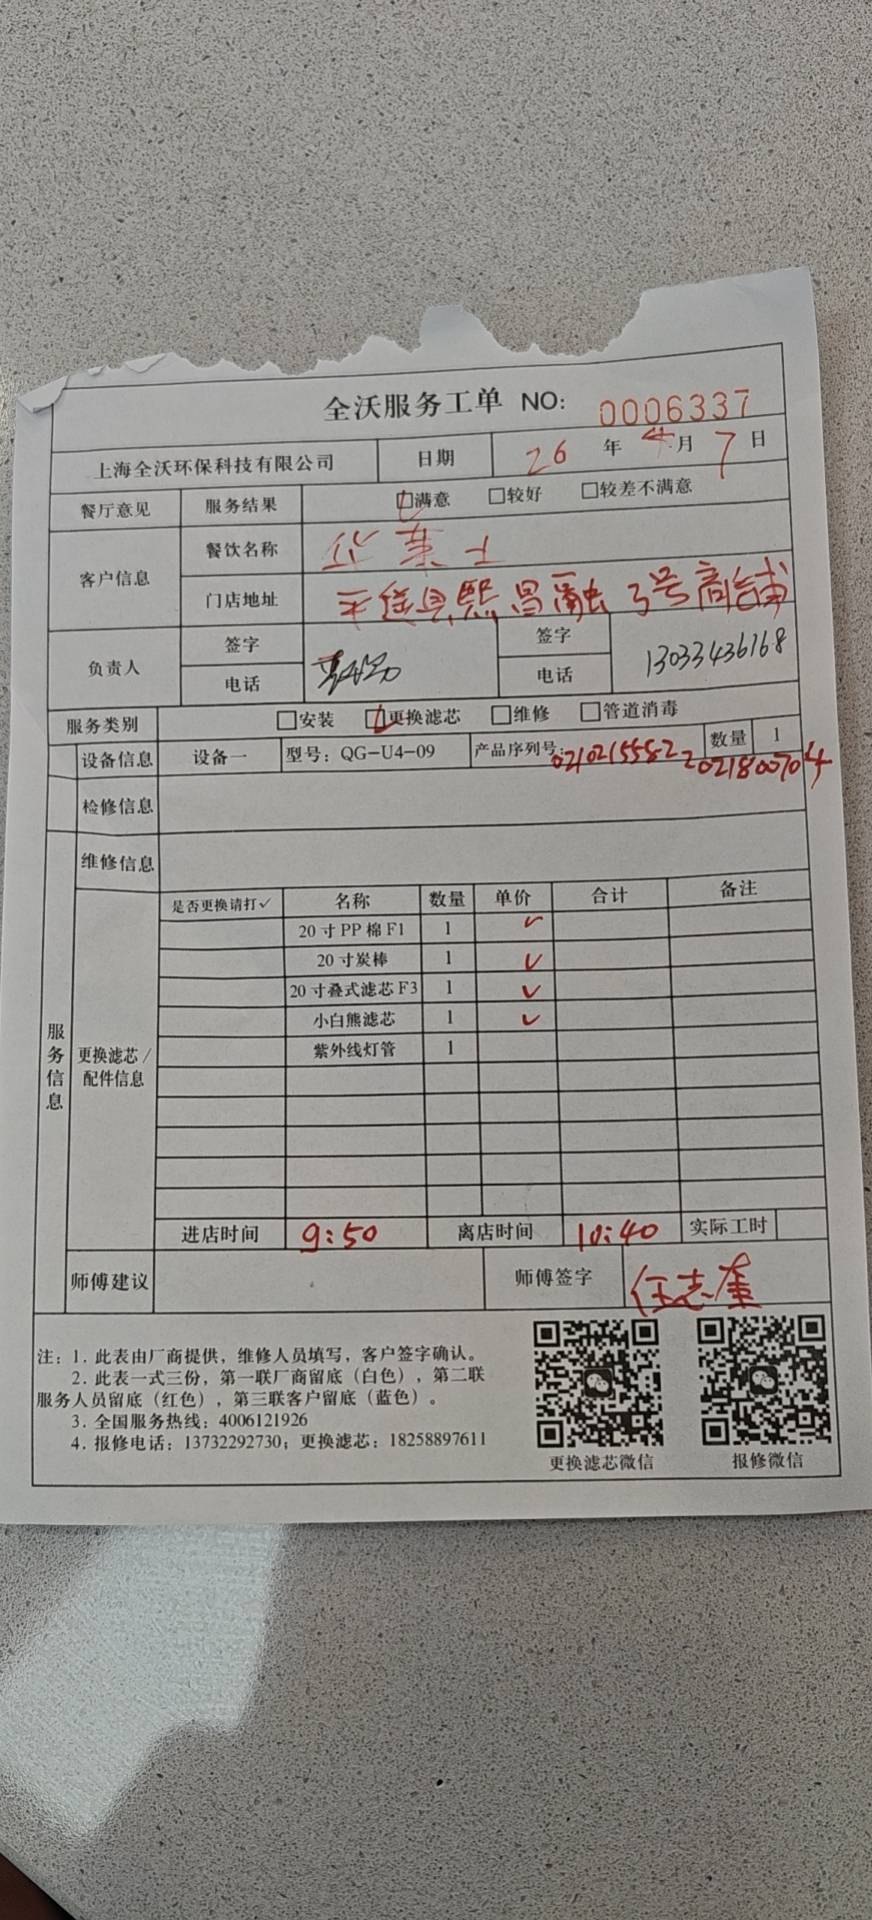 全沃服务工单 NO: 0006337
上海全沃环保科技有限公司 日期 26 年 4 月 7 日
餐厅意见 服务结果 □满意 □较好 □较差不满意
客户信息 餐饮名称 华莱士
门店地址 县熙昌融3号商铺
负责人 签字 签字
电话 电话 13033436168
服务类别 □安装 □更换滤芯 □维修 □管道消毒
设备信息 设备一 型号: QG-U4-09 产品序列号: 021021555822021800704 数量 1
检修信息
维修信息
服务信息
更换滤芯/配件信息
是否更换请打✓ 名称 数量 单价 合计 备注
20寸PP棉F1 1 ✓
20寸炭棒 1 ✓
20寸叠式滤芯F3 1 ✓
小白熊滤芯 1 ✓
紫外线灯管 1
进店时间 9:50 离店时间 10:40 实际工时
师傅建议 师傅签字 任志奎
注: 1. 此表由厂商提供，维修人员填写，客户签字确认。
2. 此表一式三份，第一联厂商留底（白色），第二联
服务人员留底（红色），第三联客户留底（蓝色）。
3. 全国服务热线: 4006121926
4. 报修电话: 13732292730; 更换滤芯: 18258897611
更换滤芯微信 报修微信